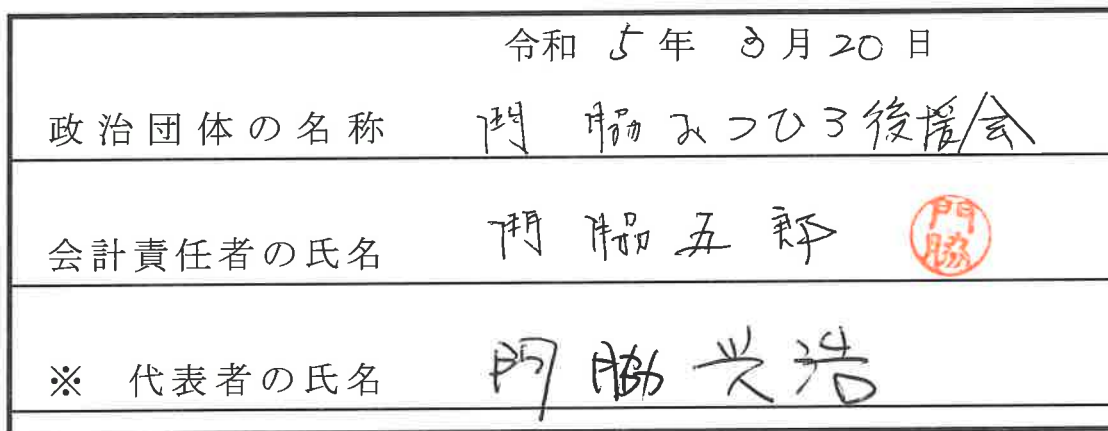 令和 5年 3月20日
政治団体の名称 門脇みつひろ後援会
会計責任者の氏名 門脇五郎 門脇
※ 代表者の氏名 門脇光浩